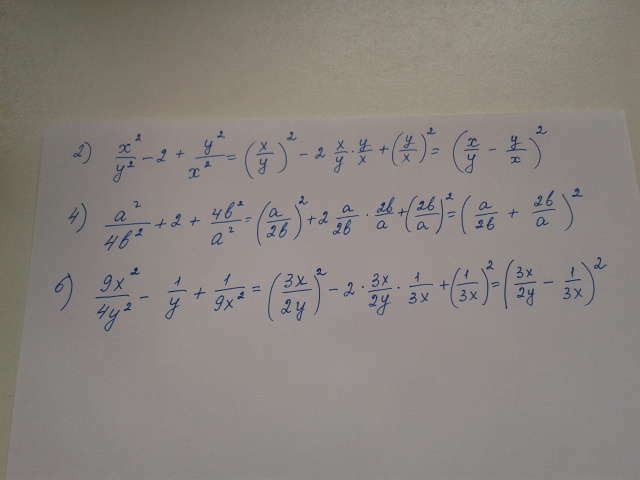 2) x²/y² − 2 + y²/x² = (x/y)² − 2 x/y · y/x + (y/x)² = (x/y − y/x)²
4) a²/4b² + 2 + 4b²/a² = (a/2b)² + 2 a/2b · 2b/a + (2b/a)² = (a/2b + 2b/a)²
6) 9x²/4y² − 1/y + 1/9x² = (3x/2y)² − 2 · 3x/2y · 1/3x + (1/3x)² = (3x/2y − 1/3x)²